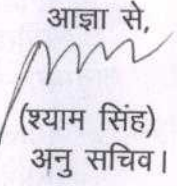 आज्ञा से,
(श्याम सिंह)
अनु सचिव।